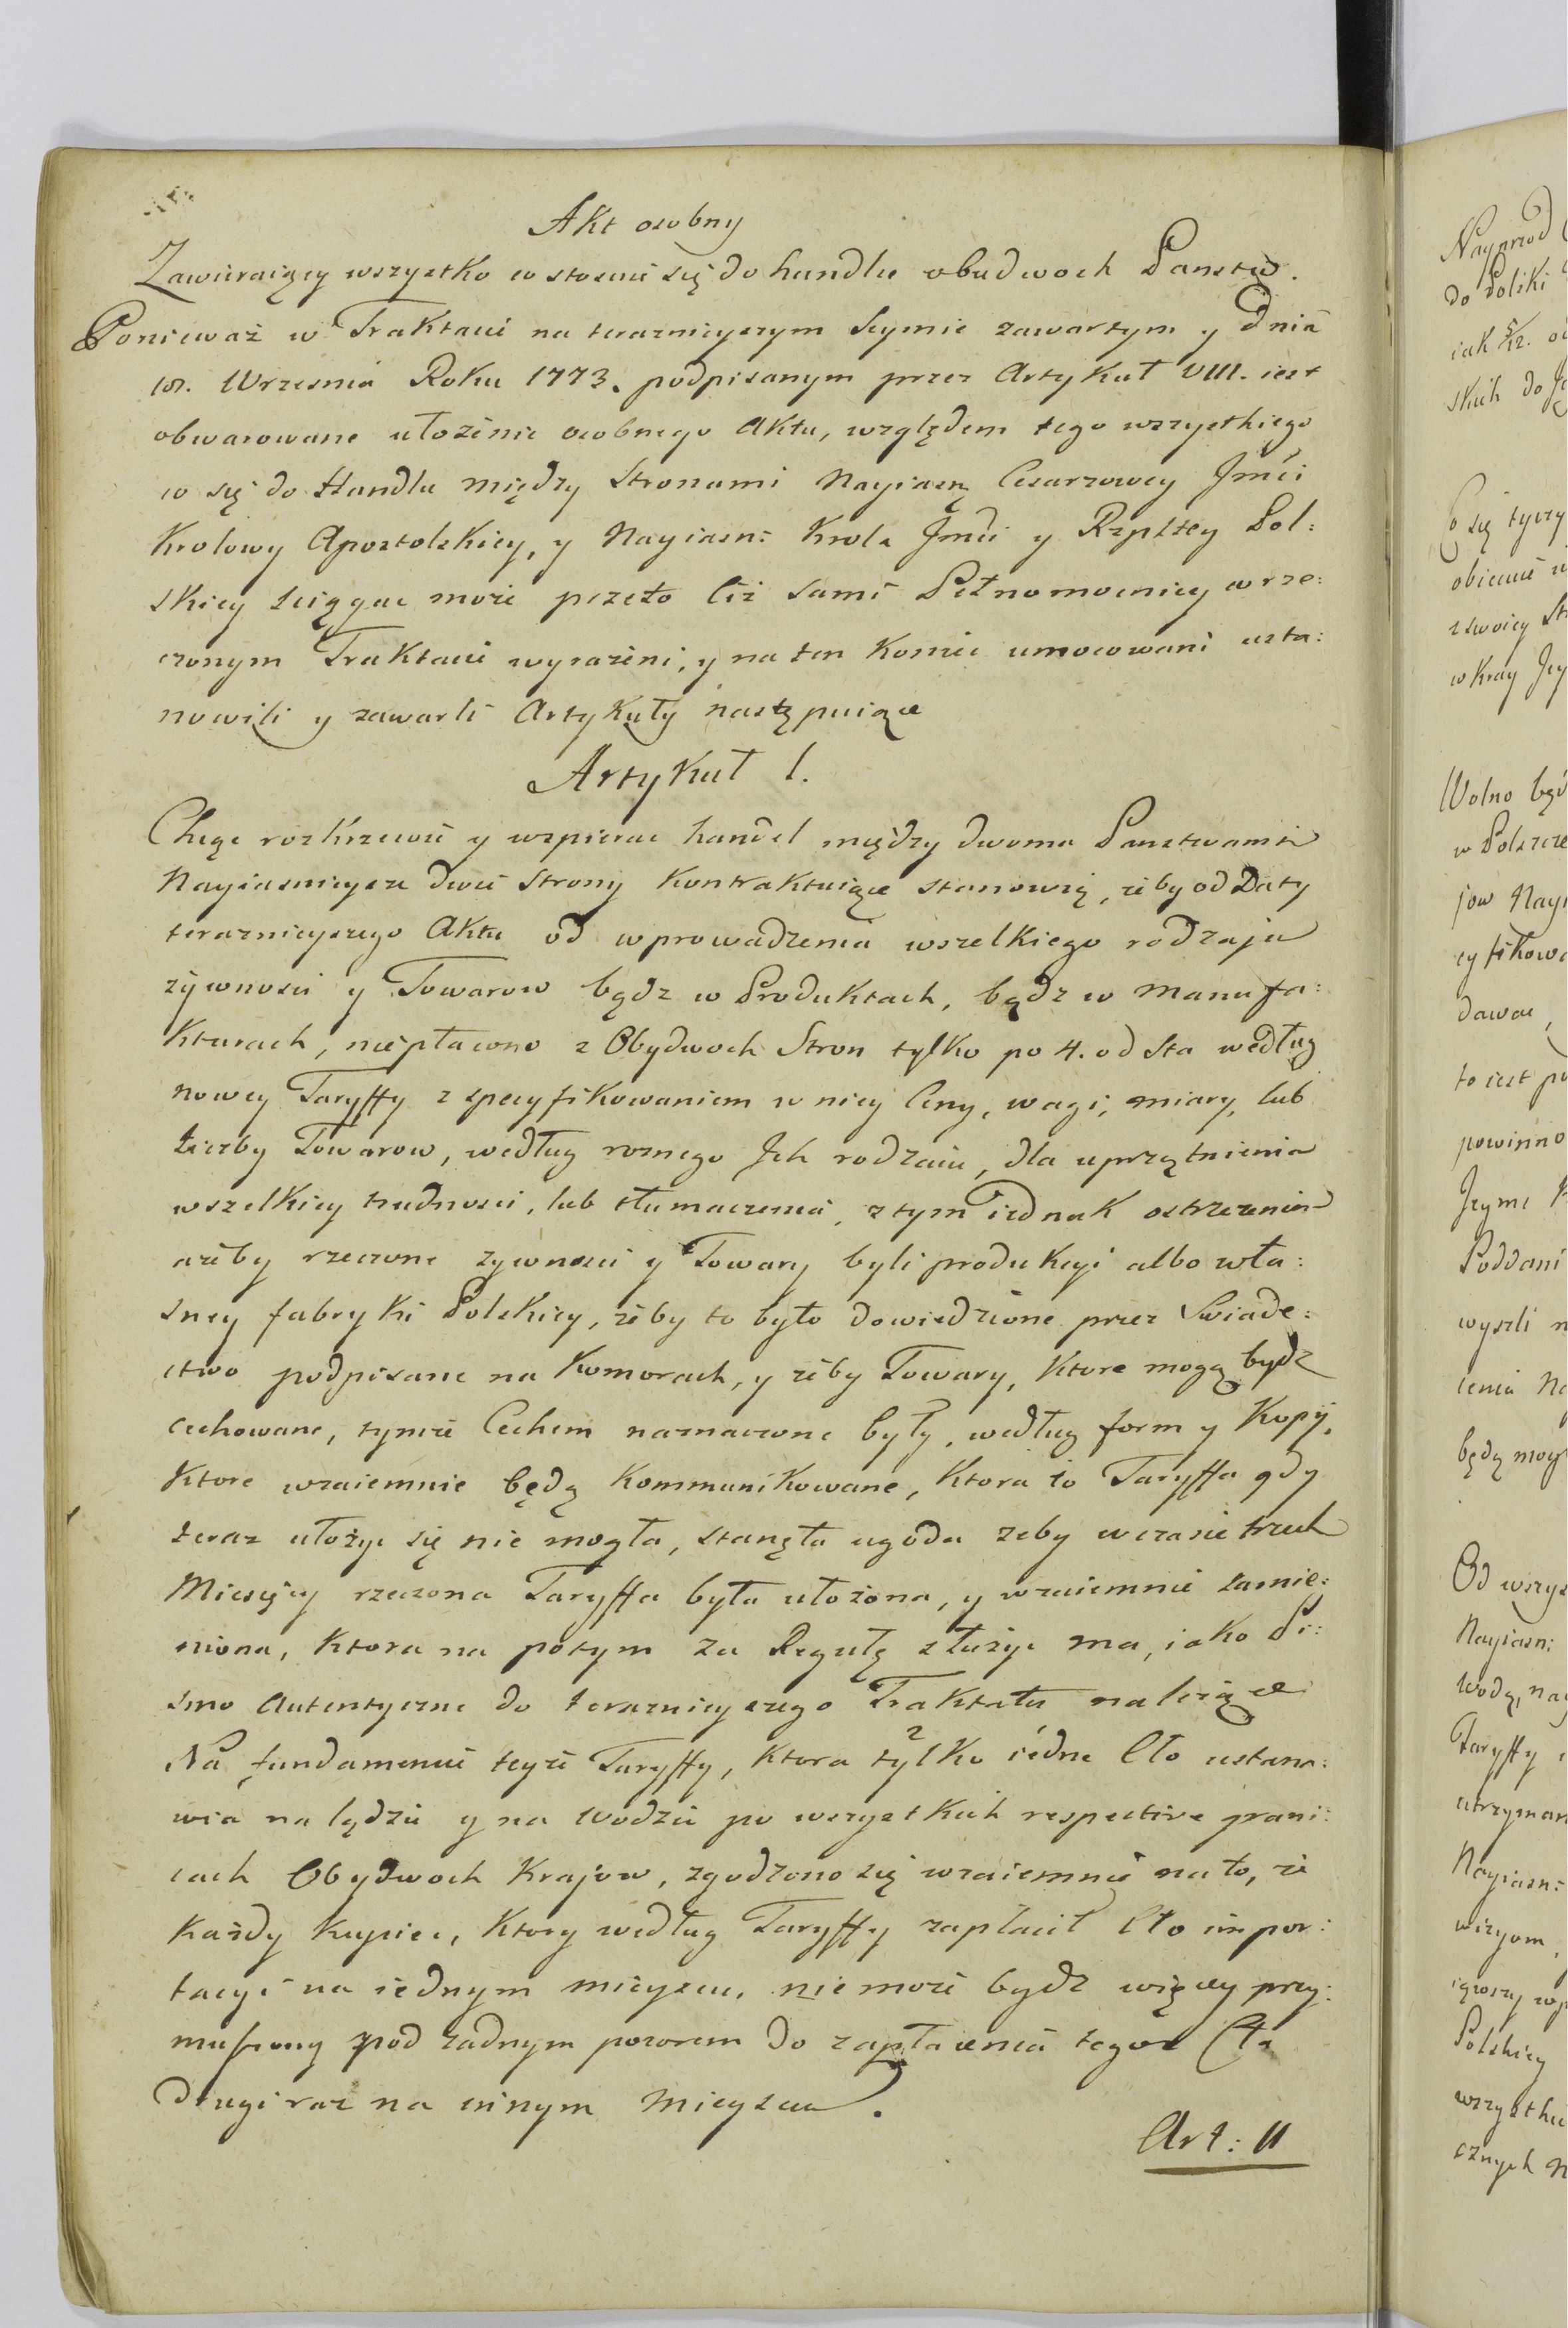 Akt osobny
Zawieraiący wszystko co stosuie się do handlu obudwoch Panstw.
Poniewaź w Traktacie na teraznieyszym Seymie zawartym y dnia
18. Wrzesnia Roku 1773. podpisanym przez Artykuł VIII. iest
obwarowane ułozenie osobnego Aktu, względem tego wszystkiego
co się do Handlu między Stronami Nayiasn Cesarzowey Jmći
Krolowy Apostolskiey, y Nayiasn: Krola Jmći y Rzpltey Pol:
skiey sciągac może przeto Ciż sami Pełnomocnicy w rze:
czonym Traktacie wyrazeni, y na ten Koniec umocowani usta:
nowili y zawarli Artykuły następuiące
Artykuł I.
Chcąc rozkrzewić y wspierac handel między dwoma Panstwami
Nayiasnieysze dwie Strony Kontraktuiące stanowią, żeby od Daty
teraznieyszego Aktu od wprowadzenia wszelkiego rodzaju
żywnosci y Towarow bądz w Produktach, bądz w manufa:
kturach, niepłacono z Obydwoch Stron tylko po 4. od Sta według
nowey Taryffy z specyfikowaniem w niey Ceny, wagi, miary, lub
liczby Towarow, według roznego Jch rodzaiu, dla uprzątnienia
wszelkiey trudnosci, lub tłumaczenia, z tym iednak ostrzezeniem
ażeby rzeczone zywnosci y Towary byli produkcyi albo wła:
sney fabryki Polskiey, żeby to było dowiedzione przez Swiade:
ctwo podpisane na Komorach, y żeby Towary, Ktore mogą bydz
cechowane, tymże Cechem naznaczone były, według form y Kopij,
Ktore wzaiemnie będą Kommunikowane, Ktora to Taryffa gdy
teraz ułożyc się nie mogła, stanęła ugoda zeby w czasie trzech
Miesięcy rzeczona Taryffa była ułożona, y wzaiemnie zamie:
niona, Ktora na potym za Regułę służyc ma, iako Pi:
smo Autentyczne do terazniejszego Traktatu należące
Na fundamencie teyże Taryffy, Ktora tylko iedne Cło ustano:
wia na lądzie y na wodzie po wszystkich respective grani:
cach Obydwoch Krajow, zgodzono się wzaiemnie na to, że
Każdy Kupiec, Ktory według Taryffy zapłacił Cło impor:
tacyi na iednym mieyscu, nie może bydz więcey przy:
muszony pod zadnym pozorem do zapłacenia tegoz Cła
drugi raz na innym Mieyscu.
Art: II
Nayprzod
do Polski
iak 5/12. od
skich do
Co się tyczy
obiecuie
z swoiey St
w Kray Jey
Wolno będ
w Polszcze
jow Nayi
cyfikowa
dawac,
to iest po
powinno
Jeyme
Poddani
wyszli
cenia
będą mog
Od wszys
Nayiasn:
Wodą, na
Taryffy
utrzyman
Nayiasn:
Polskiey
wszystkie
cznych